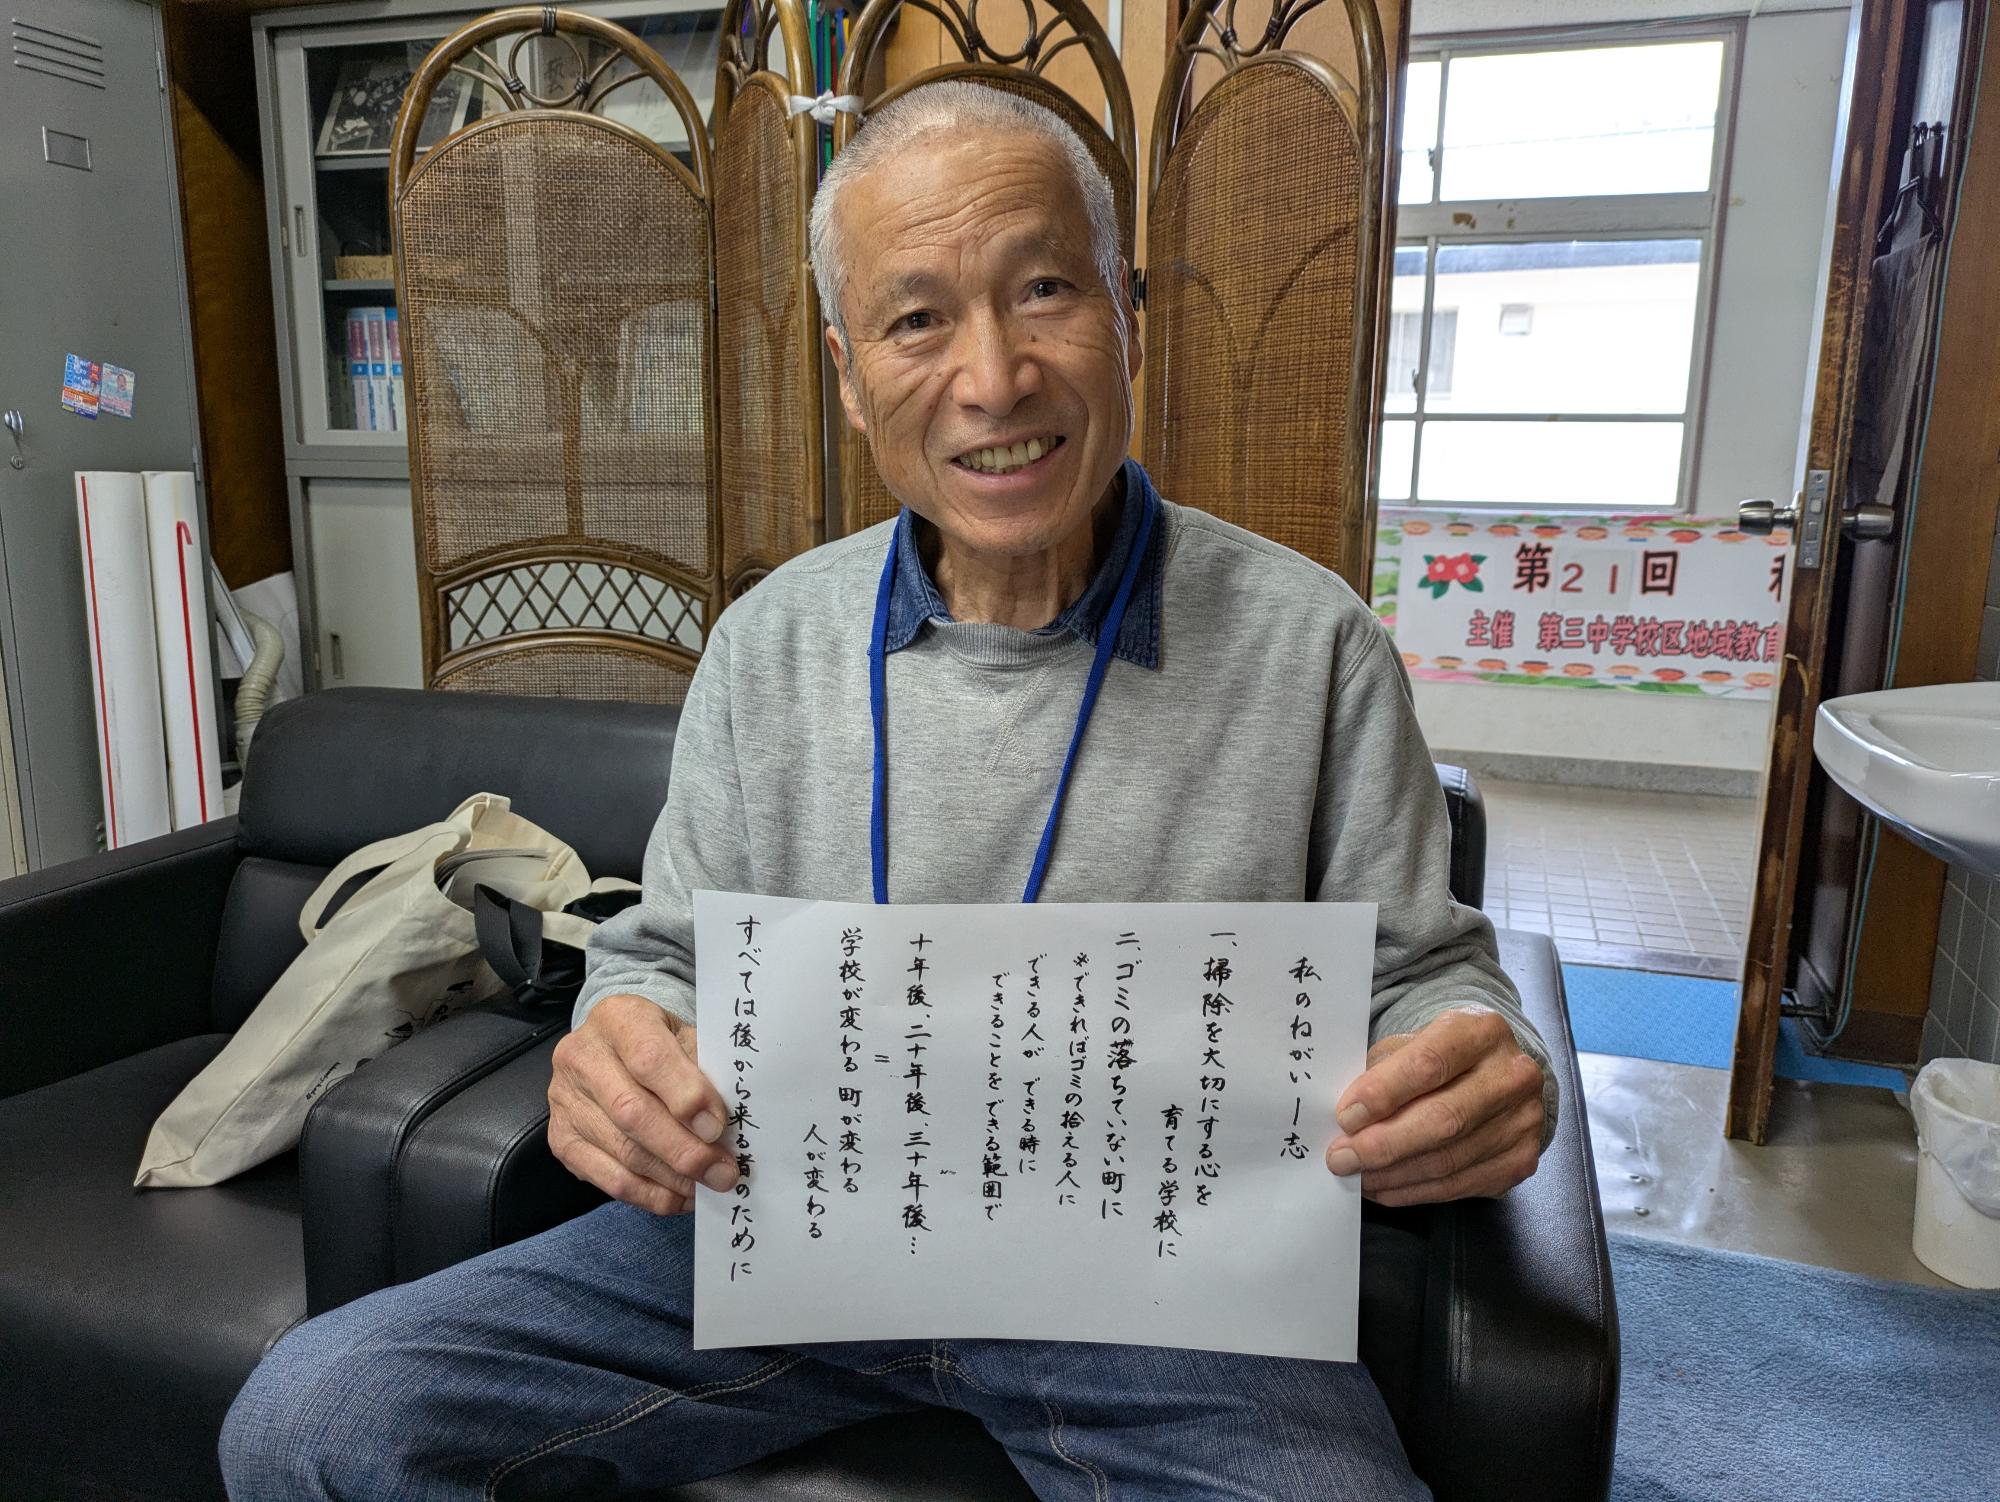 私のねがい―志
一、掃除を大切にする心を
育てる学校に
二、ゴミの落ちていない町に
※できればゴミの拾える人に
できる人が できる時に
できることを できる範囲で
十年後、二十年後、三十年後…
=
学校が変わる 町が変わる
人が変わる
すべては後から来る者のために
第21回
主催 第三中学校区地域教育